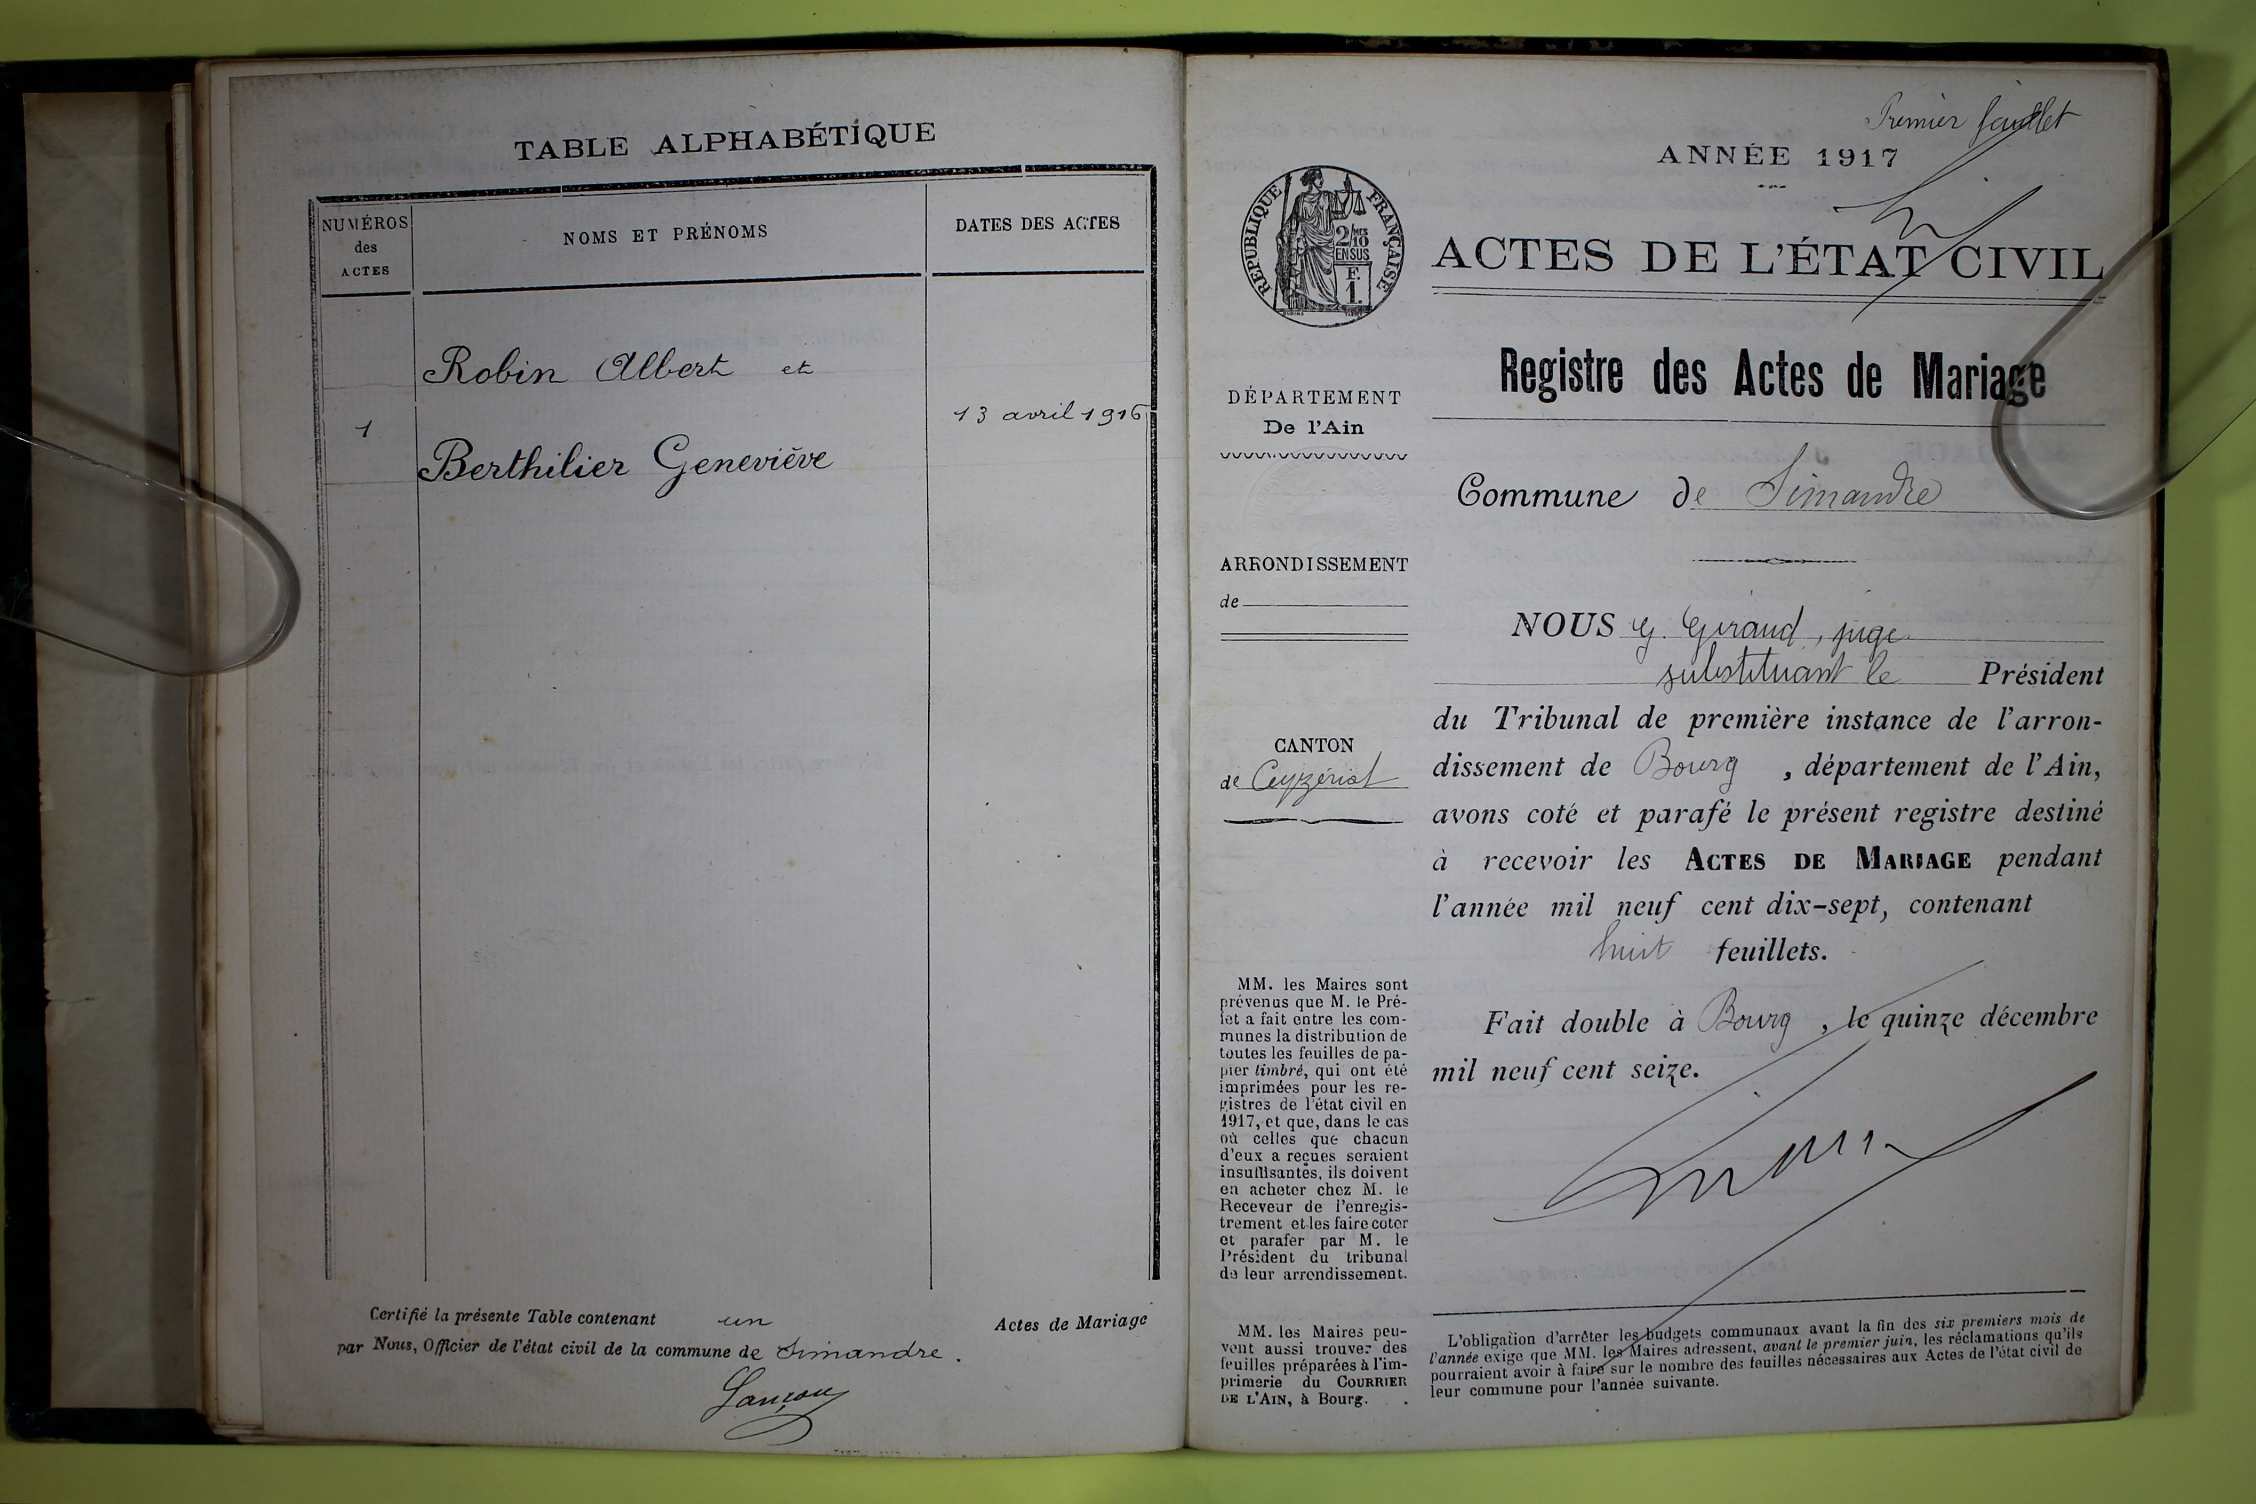 TABLE ALPHABÉTIQUE
NUMÉROS
des
ACTES
NOMS ET PRÉNOMS
DATES DES ACTES
Robin Albert et
1
13 avril 1916
Berthilier Geneviève
Certifié la présente Table contenant un Actes de Mariage
par Nous, Officier de l'état civil de la commune de Simandre.
Premier feuillet
ANNÉE 1917
RÉPUBLIQUE FRANÇAISE
2/10
EN SUS
F.
1.
ACTES DE L'ÉTAT CIVIL
Registre des Actes de Mariage
DÉPARTEMENT
De l'Ain
Commune de Simandre
ARRONDISSEMENT
de
CANTON
de Ceyzériat
NOUS G. Giraud, juge
substituant le Président
du Tribunal de première instance de l'arron-
dissement de Bourg, département de l'Ain,
avons coté et parafé le présent registre destiné
à recevoir les ACTES DE MARIAGE pendant
l'année mil neuf cent dix-sept, contenant
huit feuillets.
Fait double à Bourg, le quinze décembre
mil neuf cent seize.
MM. les Maires sont
prévenus que M. le Pré-
fet a fait entre les com-
munes la distribution de
toutes les feuilles de pa-
pier timbré, qui ont été
imprimées pour les re-
gistres de l'état civil en
1917, et que, dans le cas
où celles que chacun
d'eux a reçues seraient
insuffisantes, ils doivent
en acheter chez M. le
Receveur de l'enregis-
trement et les faire coter
et parafer par M. le
Président du tribunal
de leur arrondissement.
MM. les Maires peu-
vent aussi trouver des
feuilles préparées à l'im-
primerie du COURRIER
DE L'AIN, à Bourg.
L'obligation d'arrêter les budgets communaux avant la fin des six premiers mois de
l'année exige que MM. les Maires adressent, avant le premier juin, les réclamations qu'ils
pourraient avoir à faire sur le nombre des feuilles nécessaires aux Actes de l'état civil de
leur commune pour l'année suivante.